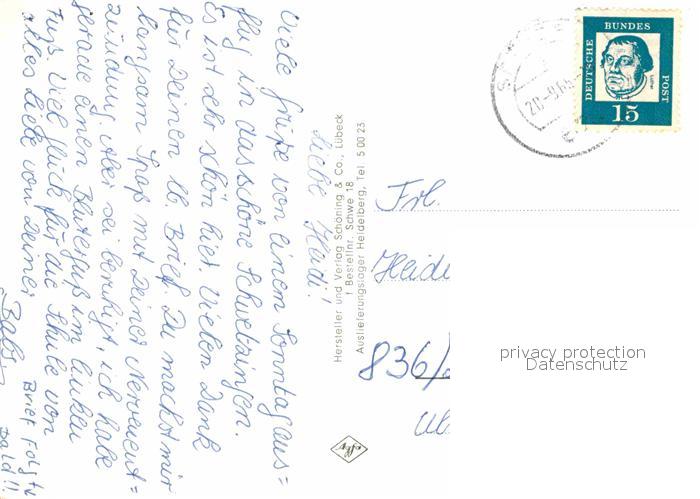 Liebe Heidi!
Viele Grüße von einem Sonntagaus=
flug in das schöne Schwetzingen.
Es ist sehr schön hier. Vielen Dank
für Deinen lb. Brief. Du machst mir
Spaß mit Deiner Nervenent=
zündung. Aber sei beruhigt, ich habe
gerade einen Bluterguß im linken
Fuß. Viel Glück für die Schule von
alles Liebe von Deiner
Brief folgt
bald!!
Hersteller und Verlag Schöning & Co., Lübeck
† Bestellnr. Schwe 18
Auslieferungslager Heidelberg, Tel. 5 00 23
DEUTSCHE
BUNDES
POST
Luther
15
Frl.
Heide
836/
privacy protection
Datenschutz